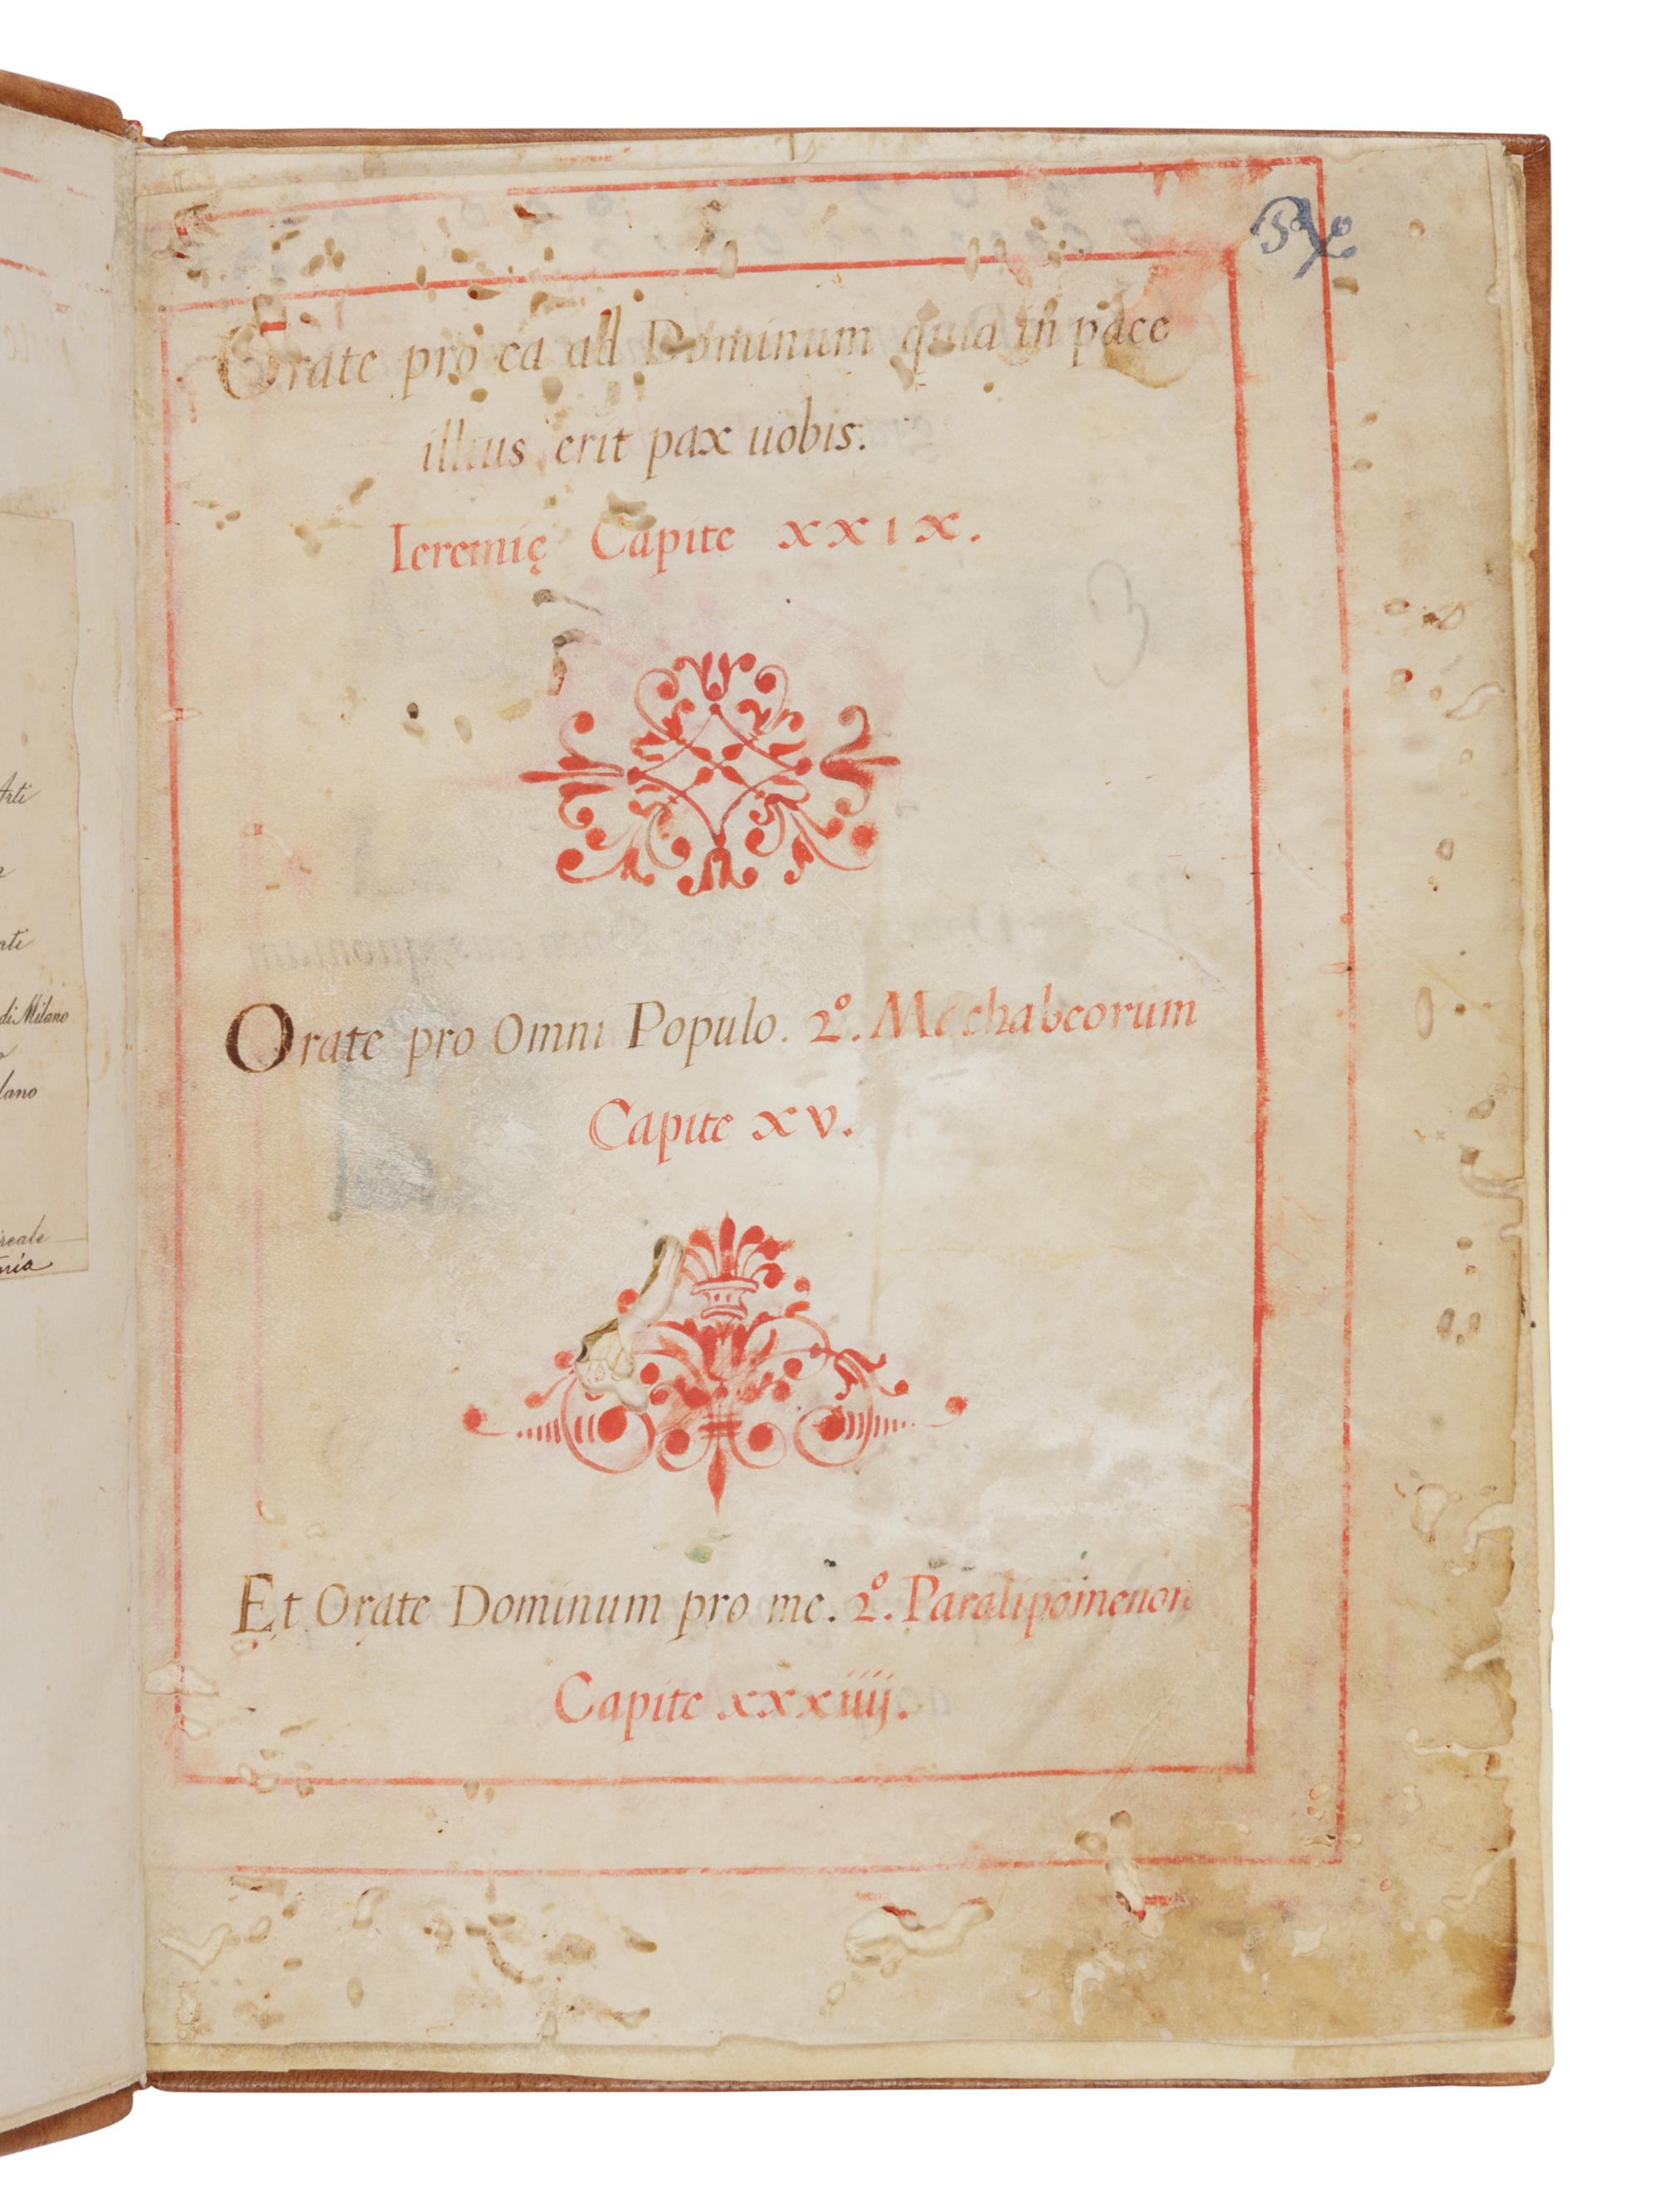 Orate pro ea ad Dominum quia in pace
illius erit pax uobis.
Ieremię Capite xxix.
3
Orate pro Omni Populo. 2º. Machabeorum
Capite xv.
Et Orate Dominum pro me. 2º. Paralipomenon
Capite xxxiiij.
Arti
di Milano